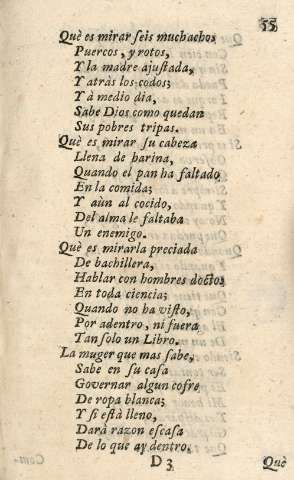 55
Què es mirar seis muchachos
Puercos, y rotos,
Y la madre ajustada,
Y atràs los codos;
Y à medio dia,
Sabe Dios como quedan
Sus pobres tripas.
Què es mirar su cabeza
Llena de harina,
Quando el pan ha faltado
En la comida;
Y aùn al cocido,
Del alma le faltaba
Un enemigo.
Què es mirarla preciada
De bachillera,
Hablar con hombres doctos
En toda ciencia;
Quando no ha visto,
Por adentro, ni fuera
Tan solo un Libro.
La muger que mas sabe,
Sabe en su casa
Governar algun cofre
De ropa blanca;
Y si està lleno,
Darà razon escasa
De lo que ay dentro.
D 3
Què